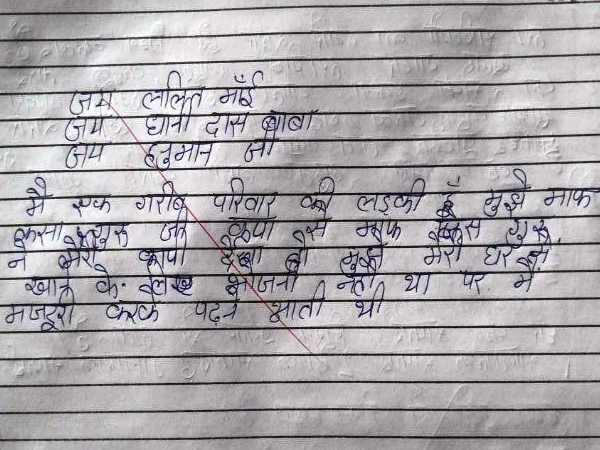 जय ललित माँई
जय घानी दास बाबा
जय हनुमान जी
मै एक गरीब परिवार की लड़की हूँ मुझे माफ
गुरू जी कृपा से माफ गुरू
ने मेरी कापी देखा तो मुझे मेरी घर में
खाने के लिए भोजन नही था पर मै
मजदूरी करके पढ़ने आती थी